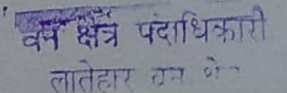 वन क्षेत्र पदाधिकारी
लातेहार वन